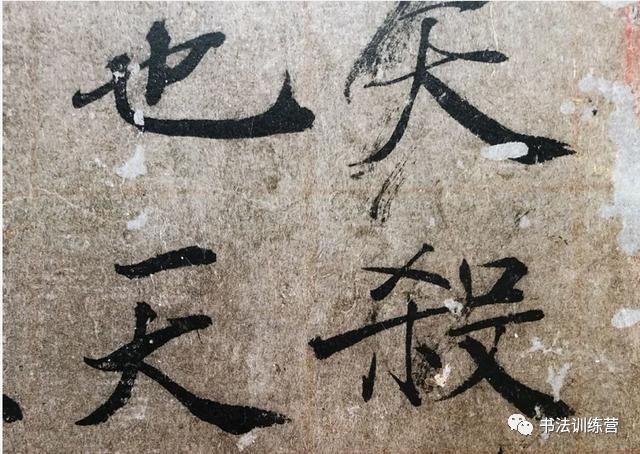 天殺
也天
书法训练营